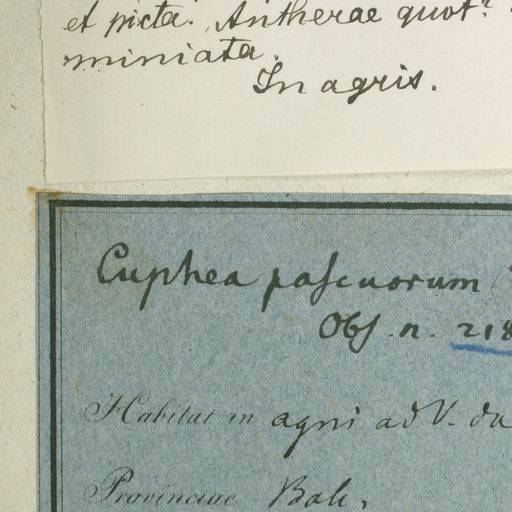 et picta. Antherae quot?
miniata.
In agris.
Cuphea paſcuorum
Obſ. n. 218
Habitat in agri ad V. da
Provinciae Bah.